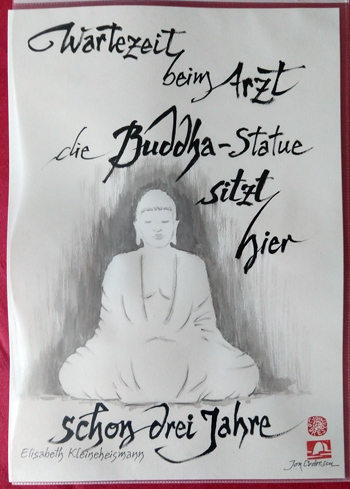 Wartezeit
beim Arzt
die Buddha-Statue
sitzt
hier
schon drei Jahre
Elisabeth Kleineheismann